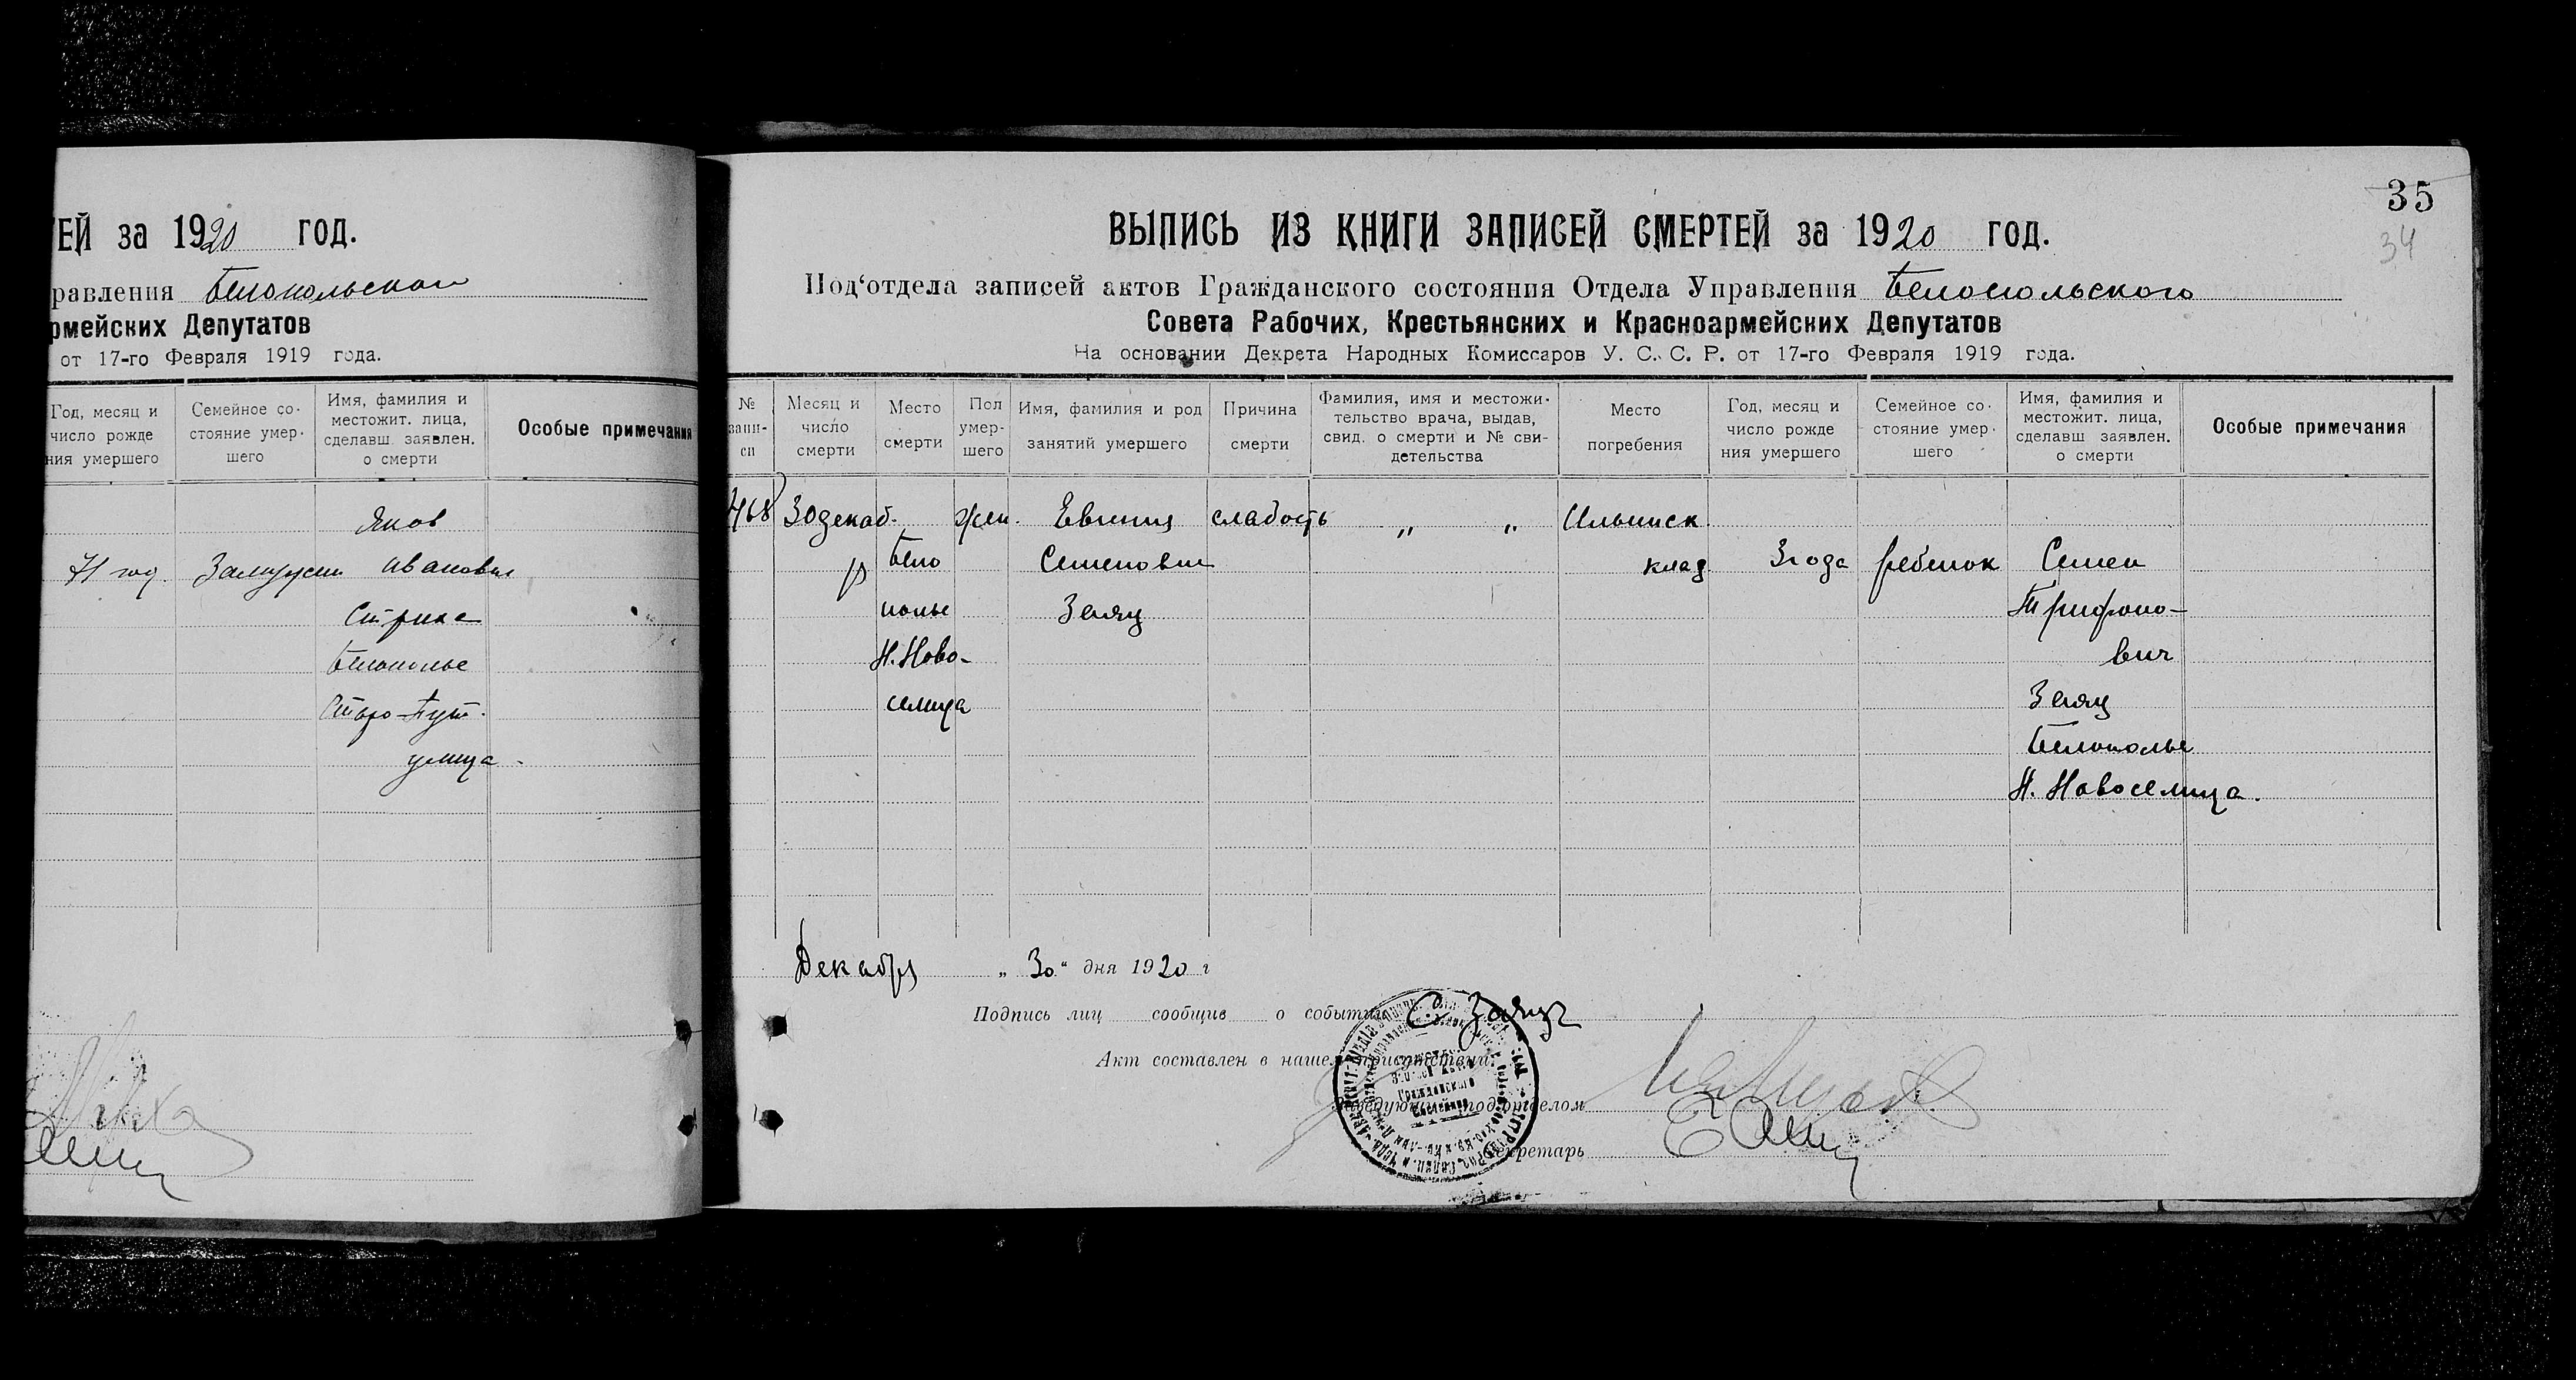 ТЕЙ за 1920 год.
равления Белопольского
рмейских Депутатов
от 17-го Февраля 1919 года.
Год, месяц и число рожде ния умершего
Семейное со- стояние умер- шего
Имя, фамилия и местожит. лица, сделавш. заявлен. о смерти
Особые примечания
Яков
71 год. Замужем Ивановна
Стрика
Белополье
Старо-Пут.
улица.
35
34
ВЫПИСЬ ИЗ КНИГИ ЗАПИСЕЙ СМЕРТЕЙ за 1920 год.
Под‘отдела записей актов Гражданского состояния Отдела Управления Белопольского
Совета Рабочих, Крестьянских и Красноармейских Депутатов
На основании Декрета Народных Комиссаров У. С. С. Р. от 17-го Февраля 1919 года.
№ запи- си
Месяц и число смерти
Место смерти
Пол умер- шего
Имя, фамилия и род занятий умершего
Причина смерти
Фамилия, имя и местожи- тельство врача, выдав, свид. о смерти и № сви- детельства
Место погребения
Год, месяц и число рожде ния умершего
Семейное со- стояние умер- шего
Имя, фамилия и местожит. лица, сделавш заявлен. о смерти
Особые примечания
468 30 декаб. жен. Евгения слабость „ „ Ильинск.
р Бело Семеновна клад. 3 года ребенок Семен
полье Заяц Трифоно-
Н. Ново- вич
селица Заяц
Белополье
Н. Новоселица.
Декабря „ 30 “ дня 1920 г
Подпись лиц сообщив о событии С Заяцъ
Акт составлен в нашем присутствии:
Заведующий под‘отделом
Секретарь
Записей Актов
Гражданского
Состояния